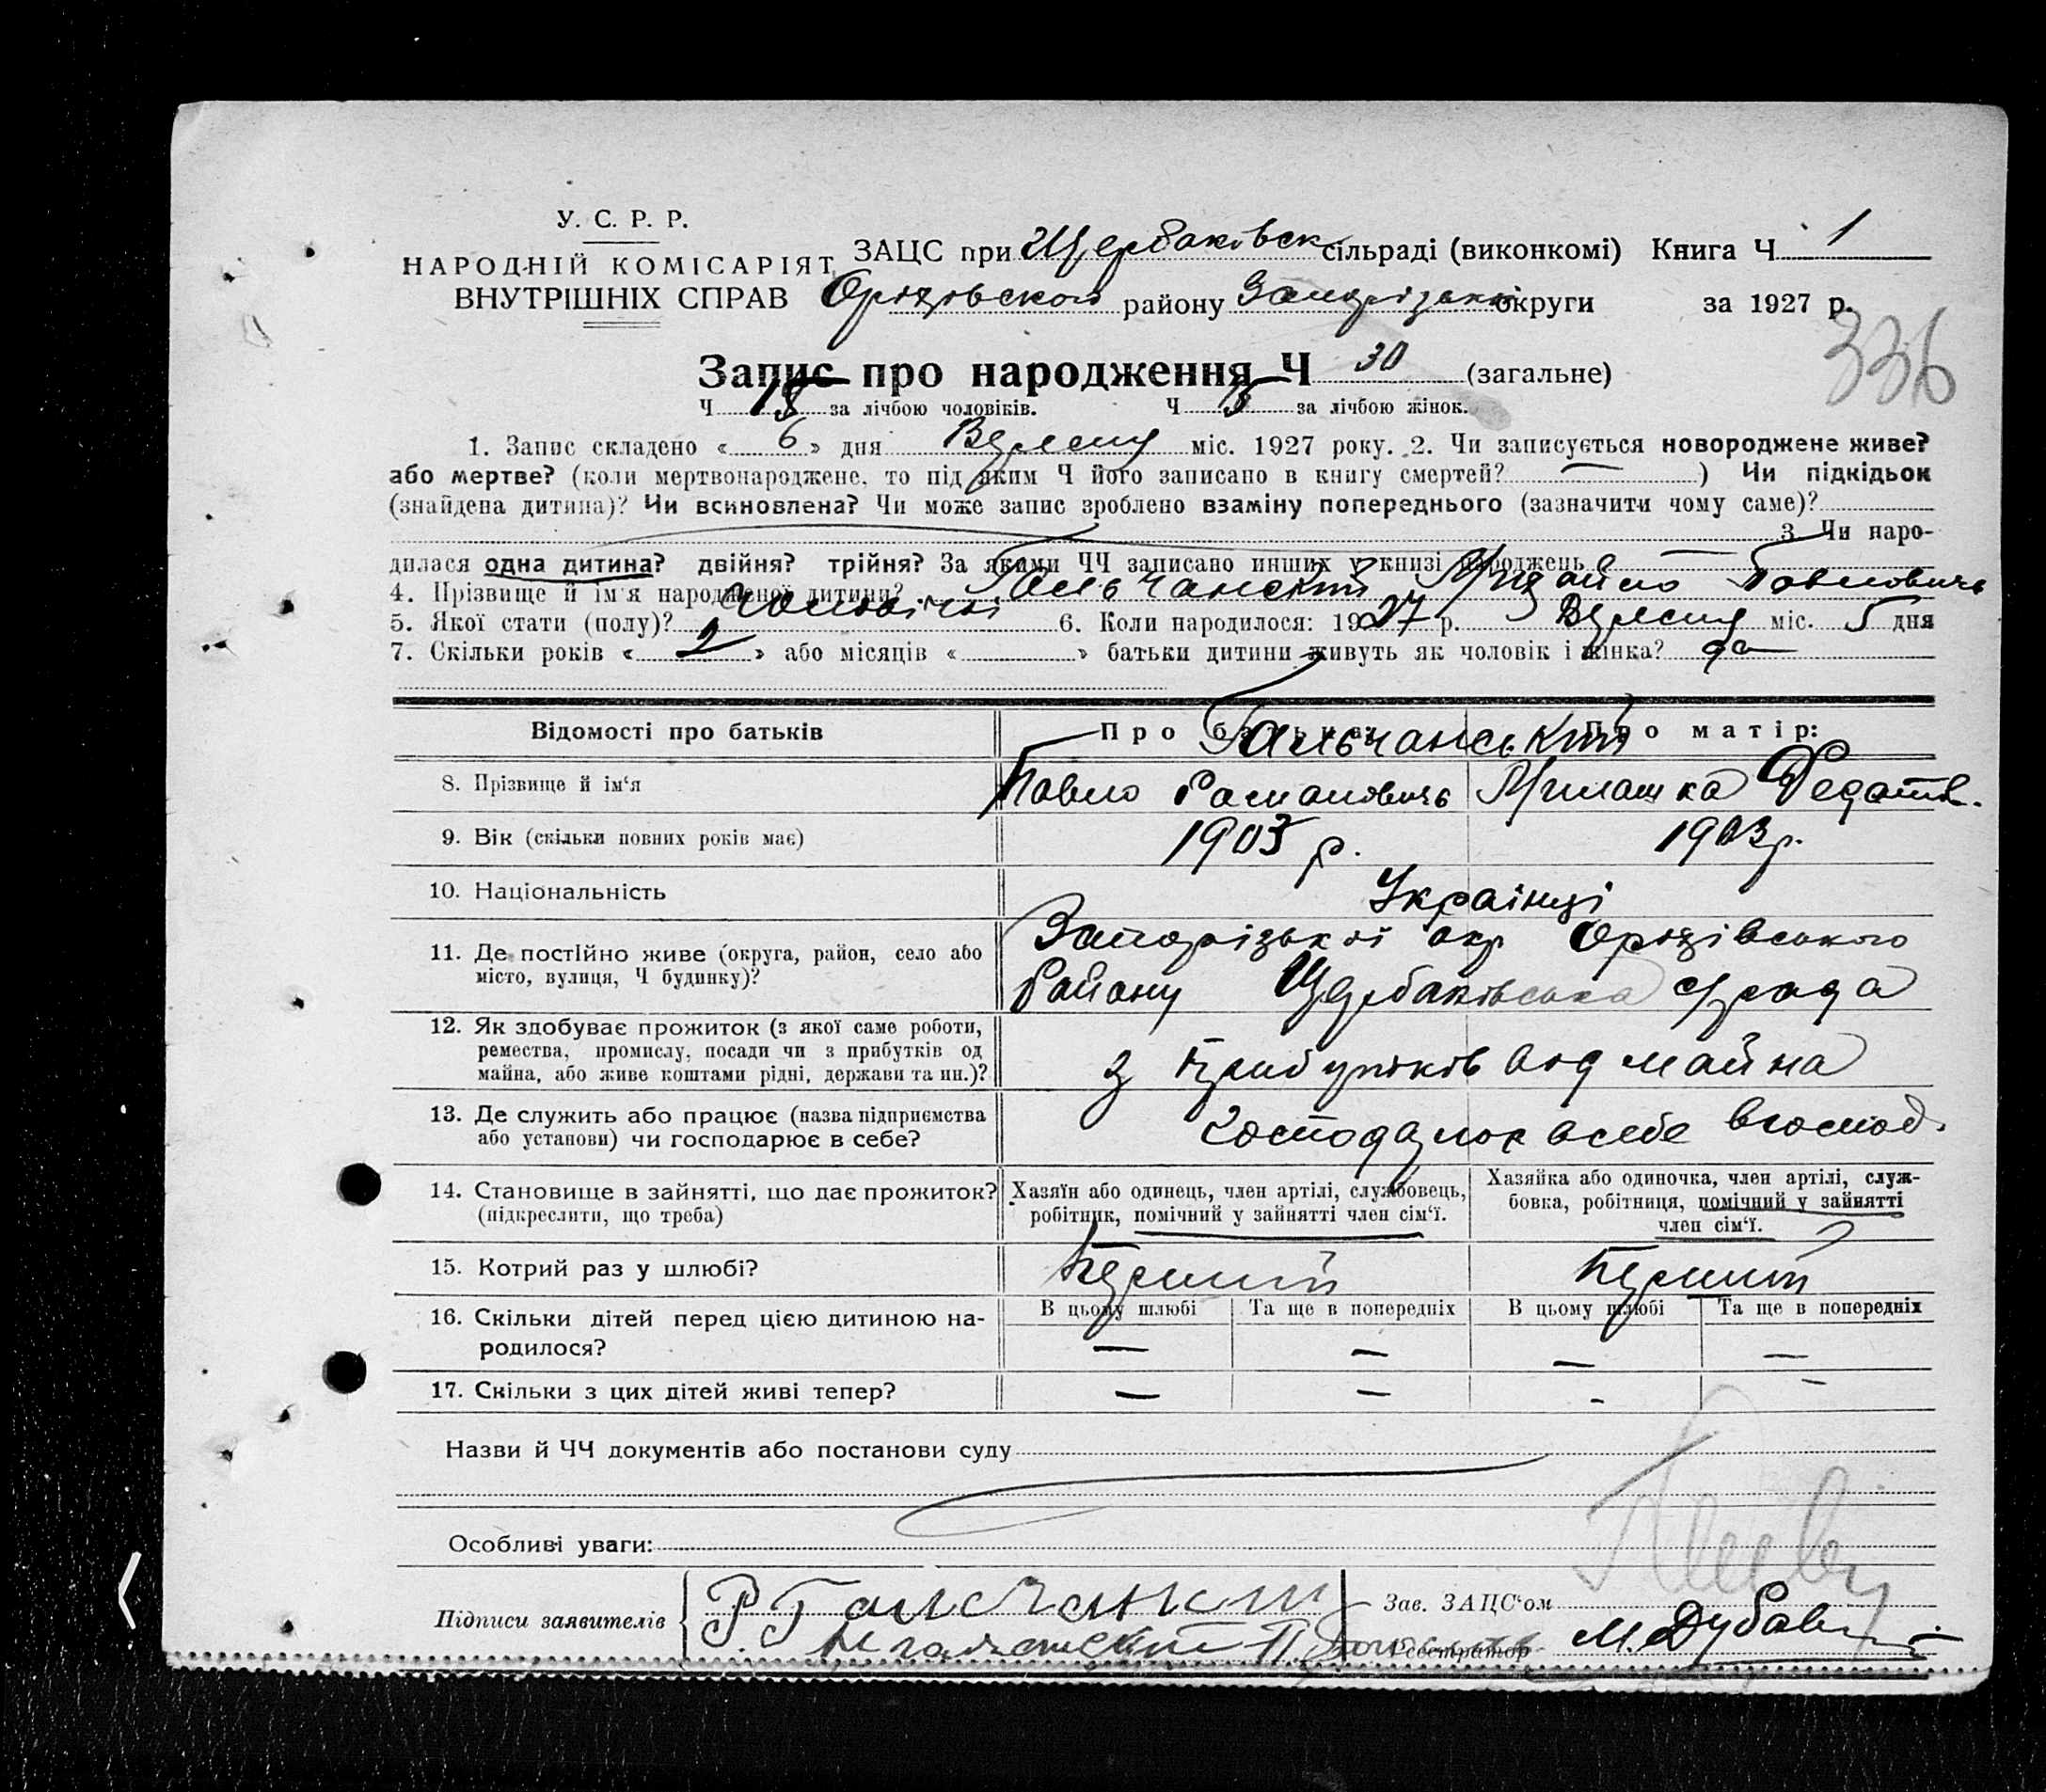 У. С. Р. Р.
НАРОДНІЙ КОМІСАРІЯТ
ВНУТРІШНІХ СПРАВ
ЗАЦС при Щербаковск сільраді (виконкомі) Книга Ч 1
Оріхівского району Запорізької округи за 1927 р.
336
Запис про народження Ч 30 (загальне)
Ч 15 за лічбою чоловіків. Ч 15 за лічбою жінок.
1. Запис складено « 6 » дня Вересня міс. 1927 року. 2. Чи записується новороджене живе?
або мертве? (коли мертвонароджене, то під яким Ч його записано в книгу смертей? — ) Чи підкідьок
(знайдена дитина)? Чи всиновлена? Чи може запис зроблено взаміну попереднього (зазначити чому саме)?
3. Чи наро-
дилася одна дитина? двійня? трійня? За якими ЧЧ записано инших у книзі народжень —
4. Прізвище й ім'я народженої дитини? Гальчанский Михайло Павлович
5. Якої стати (полу)? чоловічої 6. Коли народилося: 1927 р. Вересня міс. 5 дня
7. Скільки років « 2 » або місяців « » батьки дитини живуть як чоловік і жінка? да
Відомості про батьків Про батька: Про матір:
Гальчанський
8. Прізвище й ім'я Павло Романович Милашка Федотів.
9. Вік (скільки повних років має) 1903 р. 1903 р.
10. Національність Українці
11. Де постійно живе (округа, район, село або Запорізької окр Оріхівського
місто, вулиця, Ч будинку)? Району Щербаківська с/рада
12. Як здобуває прожиток (з якої саме роботи,
ремества, промислу, посади чи з прибутків од з прибутків від майна
майна, або живе коштами рідні, держави та ин.)?
13. Де служить або працює (назва підприємства
або установи) чи господарює в себе? Господарює в себе в господ.
14. Становище в зайнятті, що дає прожиток? Хазяїн або одинець, член артілі, службовець, Хазяйка або одиночка, член артілі, служ-
(підкреслити, що треба) робітник, помічний у зайнятті член сім'ї. бовка, робітниця, помічний у зайнятті
член сім'ї.
15. Котрий раз у шлюбі? Перший Перший
16. Скільки дітей перед цією дитиною на- В цьому шлюбі Та ще в попередніх В цьому шлюбі Та ще в попередніх
родилося? — — — —
17. Скільки з цих дітей живі тепер? — — - -
Назви й ЧЧ документів або постанови суду
Особливі уваги:
Підписи заявителів Р. Галчански Зав. ЗАЦС'ом
Реєстратор М. Дубав